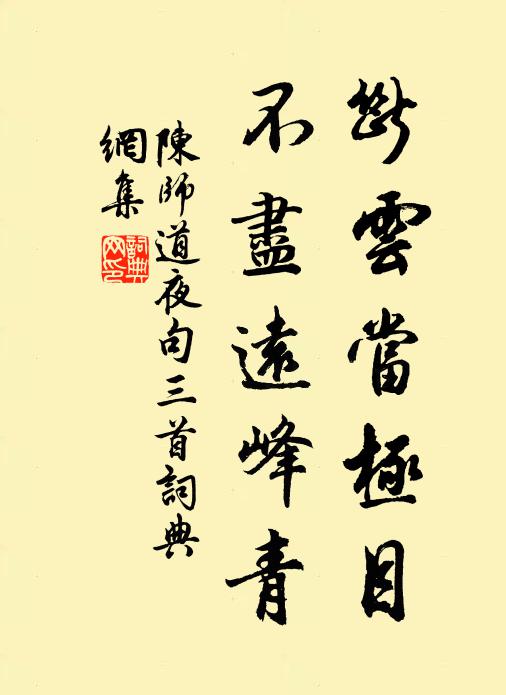 斷雲當極目
不盡遠峰青
陳師道夜句三首詞典
網集
詞典網印